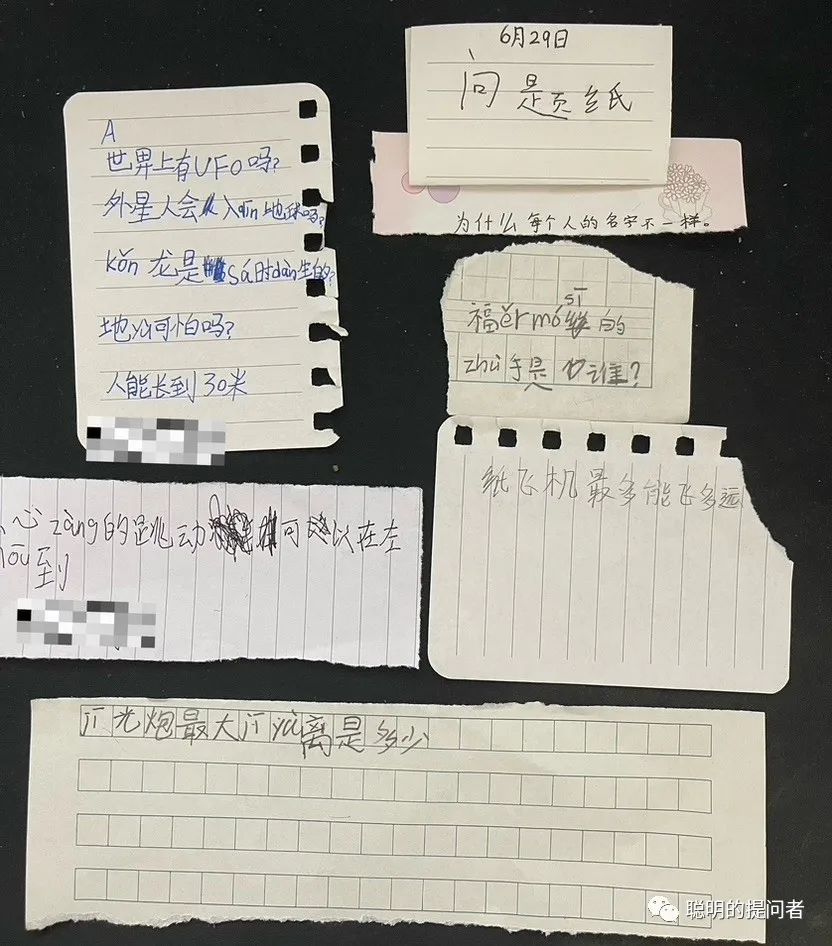 6月29日
问是页纸
为什么每个人的名字不一样。
A
世界上有UFO吗?
外星人会入qin地球吗?
kǒn龙是sá时dàn生的?
地yù可怕吗?
人能长到30米
sī
福ěr mó 的
zhù手是谁?
纸飞机最多能飞多远
心zàng的跳动可以在左
到
光炮最大 离是多少
聪明的提问者